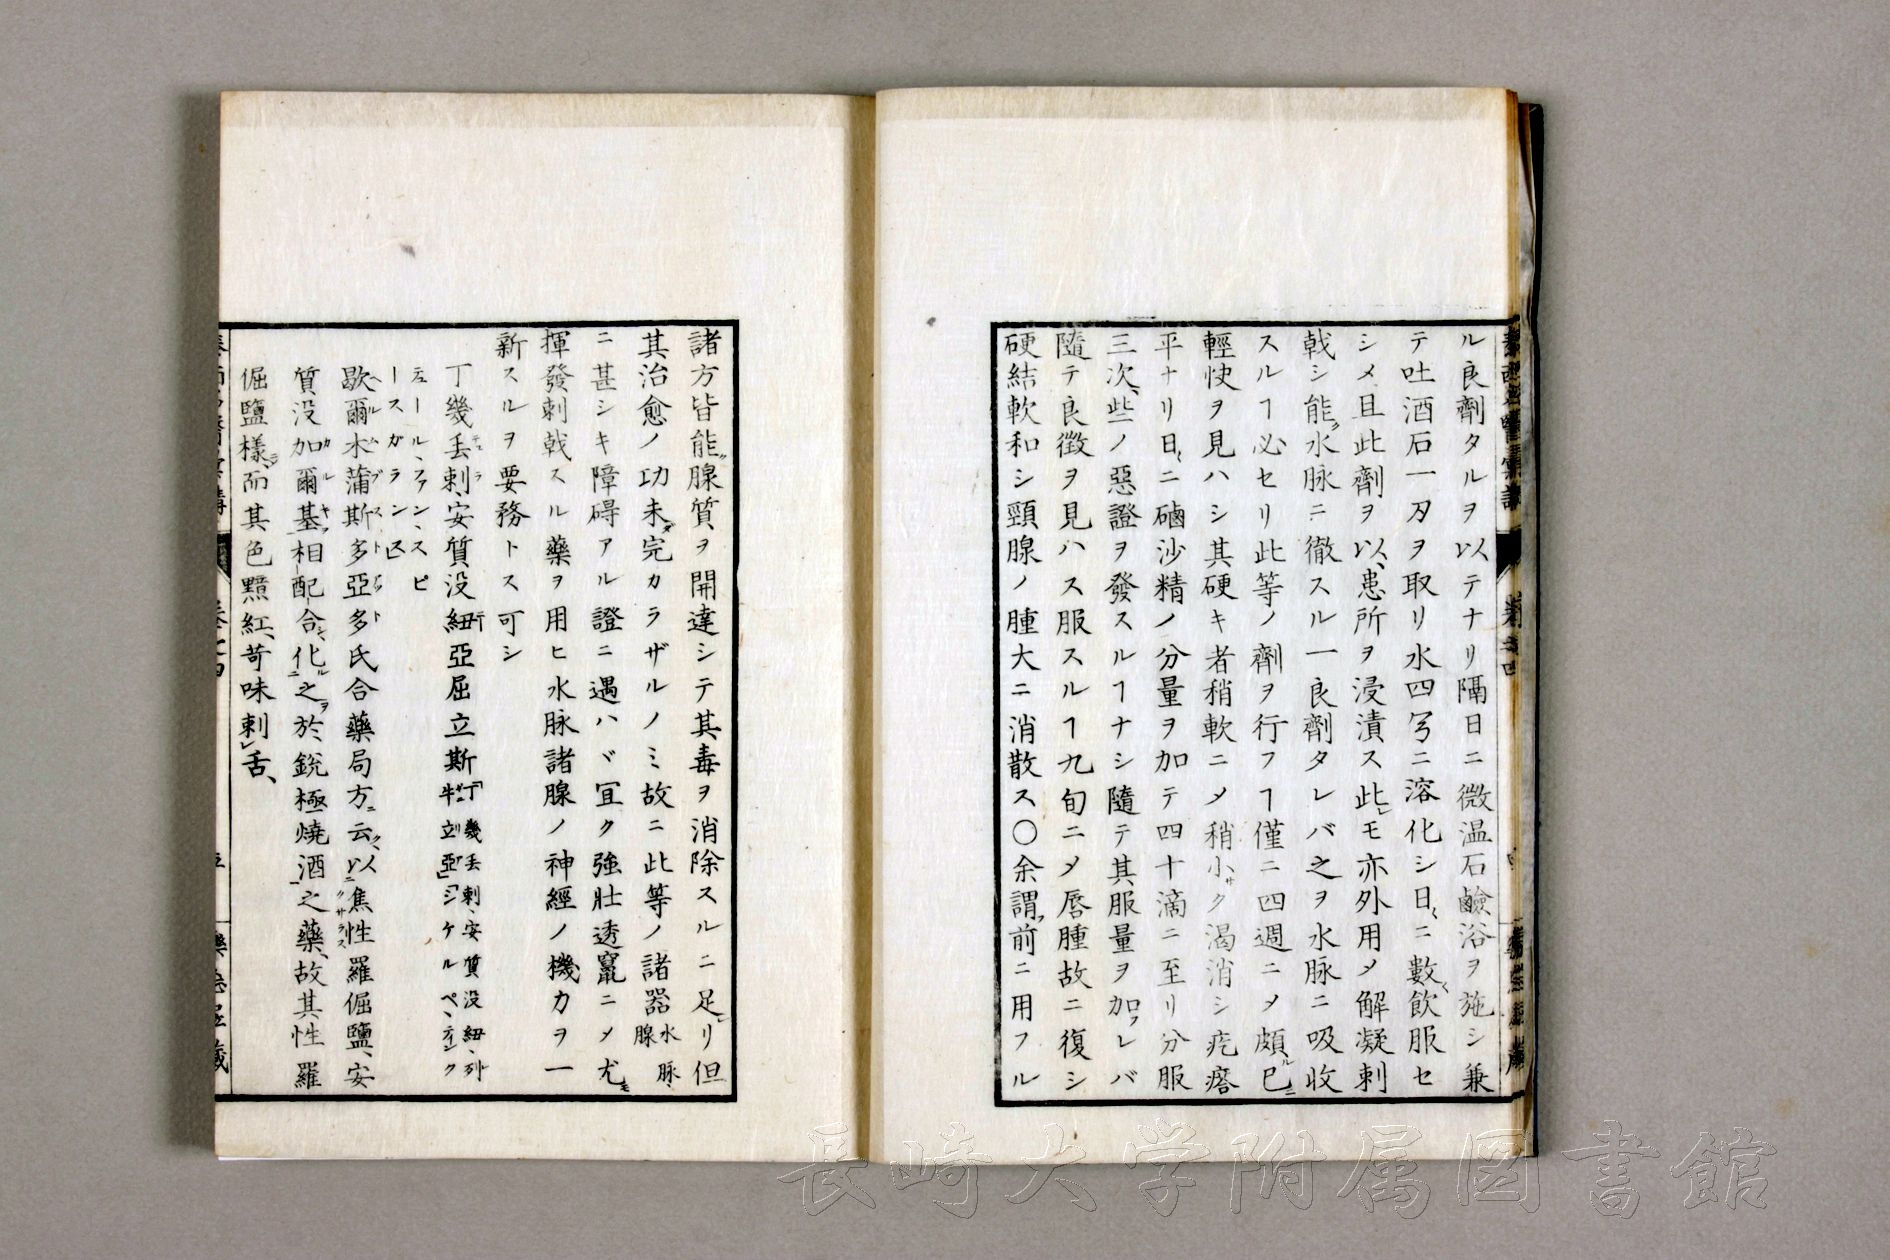 ル良劑タルヲ以テナリ隔日ニ微温石鹼浴ヲ施シ兼
テ吐酒石一刄ヲ取リ水四ヲニ溶化シ日〻ニ數〻飲服セ
シメ且此劑ヲ以患所ヲ浸漬ス此レモ亦外用メ解凝刺
戟シ能ク水脉ニ徹スル一良劑タレバ之ヲ水脉ニ吸收
スルヿ必セリ此等ノ劑ヲ行フヿ僅ニ四週ニメ頗ル已ニ
輕快ヲ見ハシ其硬キ者稍軟ニメ稍小サク渴消シ疙瘩
平ナリ日〻ニ磠沙精ノ分量ヲ加テ四十滴ニ至リ分服
三次、些ノ惡證ヲ發スルヿナシ隨テ其服量ヲ加フレバ
隨テ良徴ヲ見ハス服スルヿ九旬ニメ唇腫故ニ復シ
硬結軟和シ頸腺ノ腫大ニ消散ス〇余謂フ前ニ用フル
諸方皆能ク腺質ヲ開達シテ其毒ヲ消除スルニ足レリ但
其治愈ノ功未タ完カラザルノミ故ニ此等ノ諸器水脉、腺
ニ甚シキ障碍アル證ニ遇ハヾ冝ク強壮透竄ニメ尤モ
揮發刺戟スル藥ヲ用ヒ水脉諸腺ノ神經ノ機力ヲ一
新スルヲ要務トス可シ
丁幾丢剌、安質没紐亞屈立斯「丁幾丢剌、安質没紐、列
牛立亞」「シケルペ、ティンク
テュール、ファン、スピ
ースガランス」
歇爾木蒲斯多亞多氏合藥局方ニ云ク、以焦性羅倔鹽、安
質没加爾基相配合シ、化ニ之ヲ於、銳極燒酒之藥、故其性羅
倔鹽樣、而其色黯紅、苛味刺レ舌、
卷之四